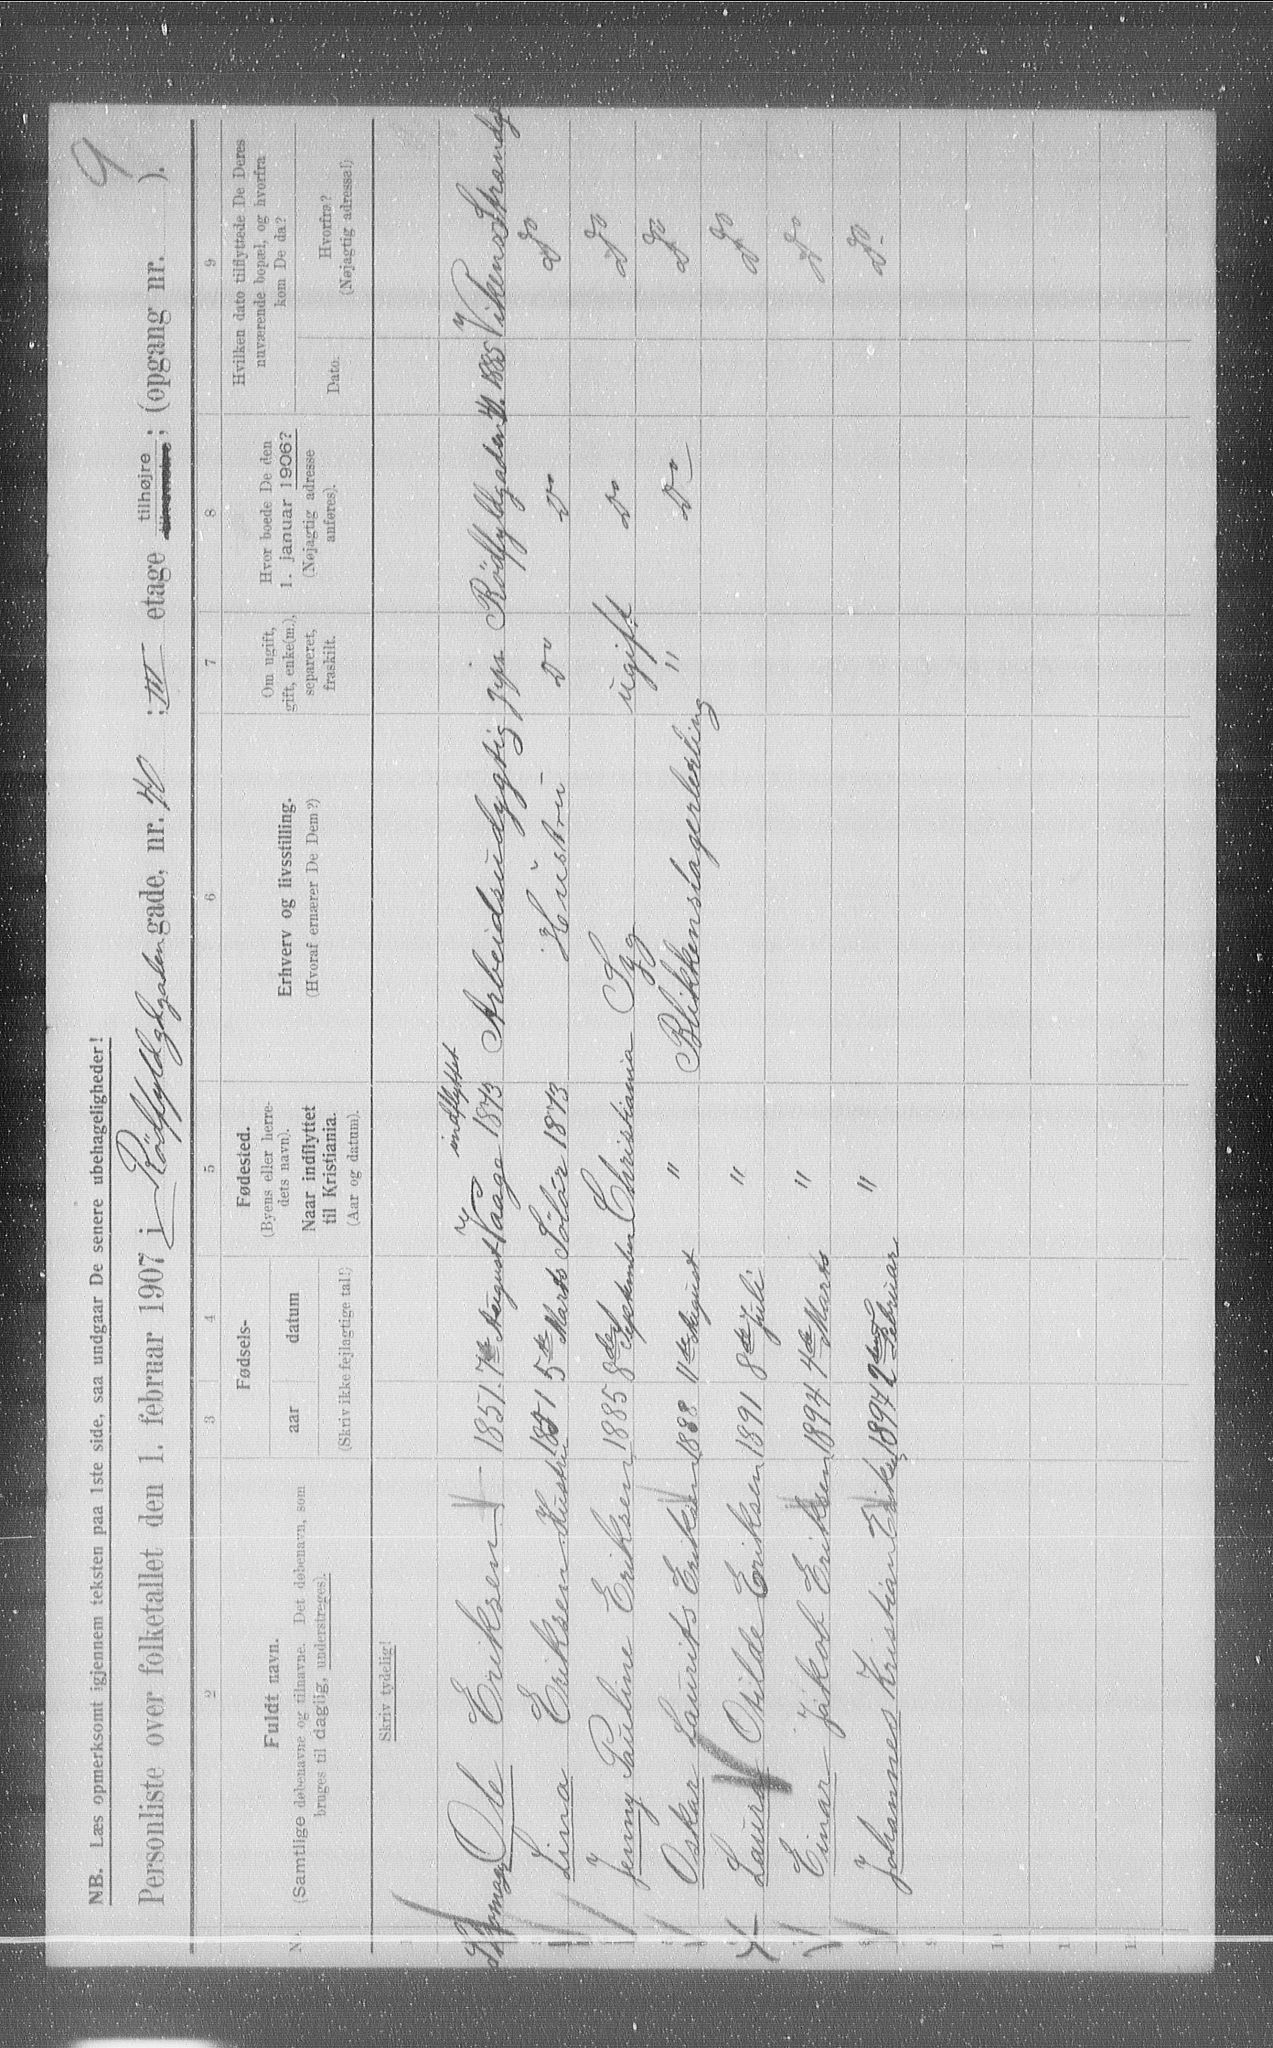 9
NB. Læs opmerksomt igjennem teksten paa 1ste side, saa undgaar De senere ubehageligheder!
Personliste over folketallet den 1. februar 1907 i Rödfyldgaden gade, nr. 40 ; III etage tilhøjre ; (opgang nr. ).
No.
2
Fuldt navn.
(Samtlige døbenavne og tilnavne. Det døbenavn, som
bruges til daglig, understreges).
Skriv tydelig!
3 4
Fødsels-
aar datum
(Skriv ikke fejlagtige tal!)
5
Fødested.
(Byens eller herre-
dets navn).
Naar indflyttet
til Kristiania.
(Aar og datum).
6
Erhverv og livsstilling.
(Hvoraf ernærer De Dem?)
7
Om ugift,
gift, enke(m.),
separeret,
fraskilt.
8
Hvor boede De den
1. januar 1906?
(Nøjagtig adresse
anføres).
9
Hvilken dato tilflyttede De Deres
nuværende bopæl, og hvorfra
kom De da?
Dato.
Hvorfra?
(Nøjagtig adresse!)
indflyttet
Ole Eriksen 1851 7de August Vaage 1873 Arbeidsudygtig gift Rödfyldgaden 40 1885
Lina Eriksen Hustru 1851 5te Marts Solør 1873 Hustru Do Do Do
Jenny Pauline Eriksen 1885 8de September Christiania Syg ugift Do Do
Oskar Laurits Eriksen 1888 11te August " Blikkenslagerlerling " Do Do
Laura Otilde Eriksen 1891 8de Juli " Do
Einar Jakob Eriksen 1894 4de Marts " Do
Johannes Kristian Eriksen 1897 2den Februar " Do
9
10
11
12